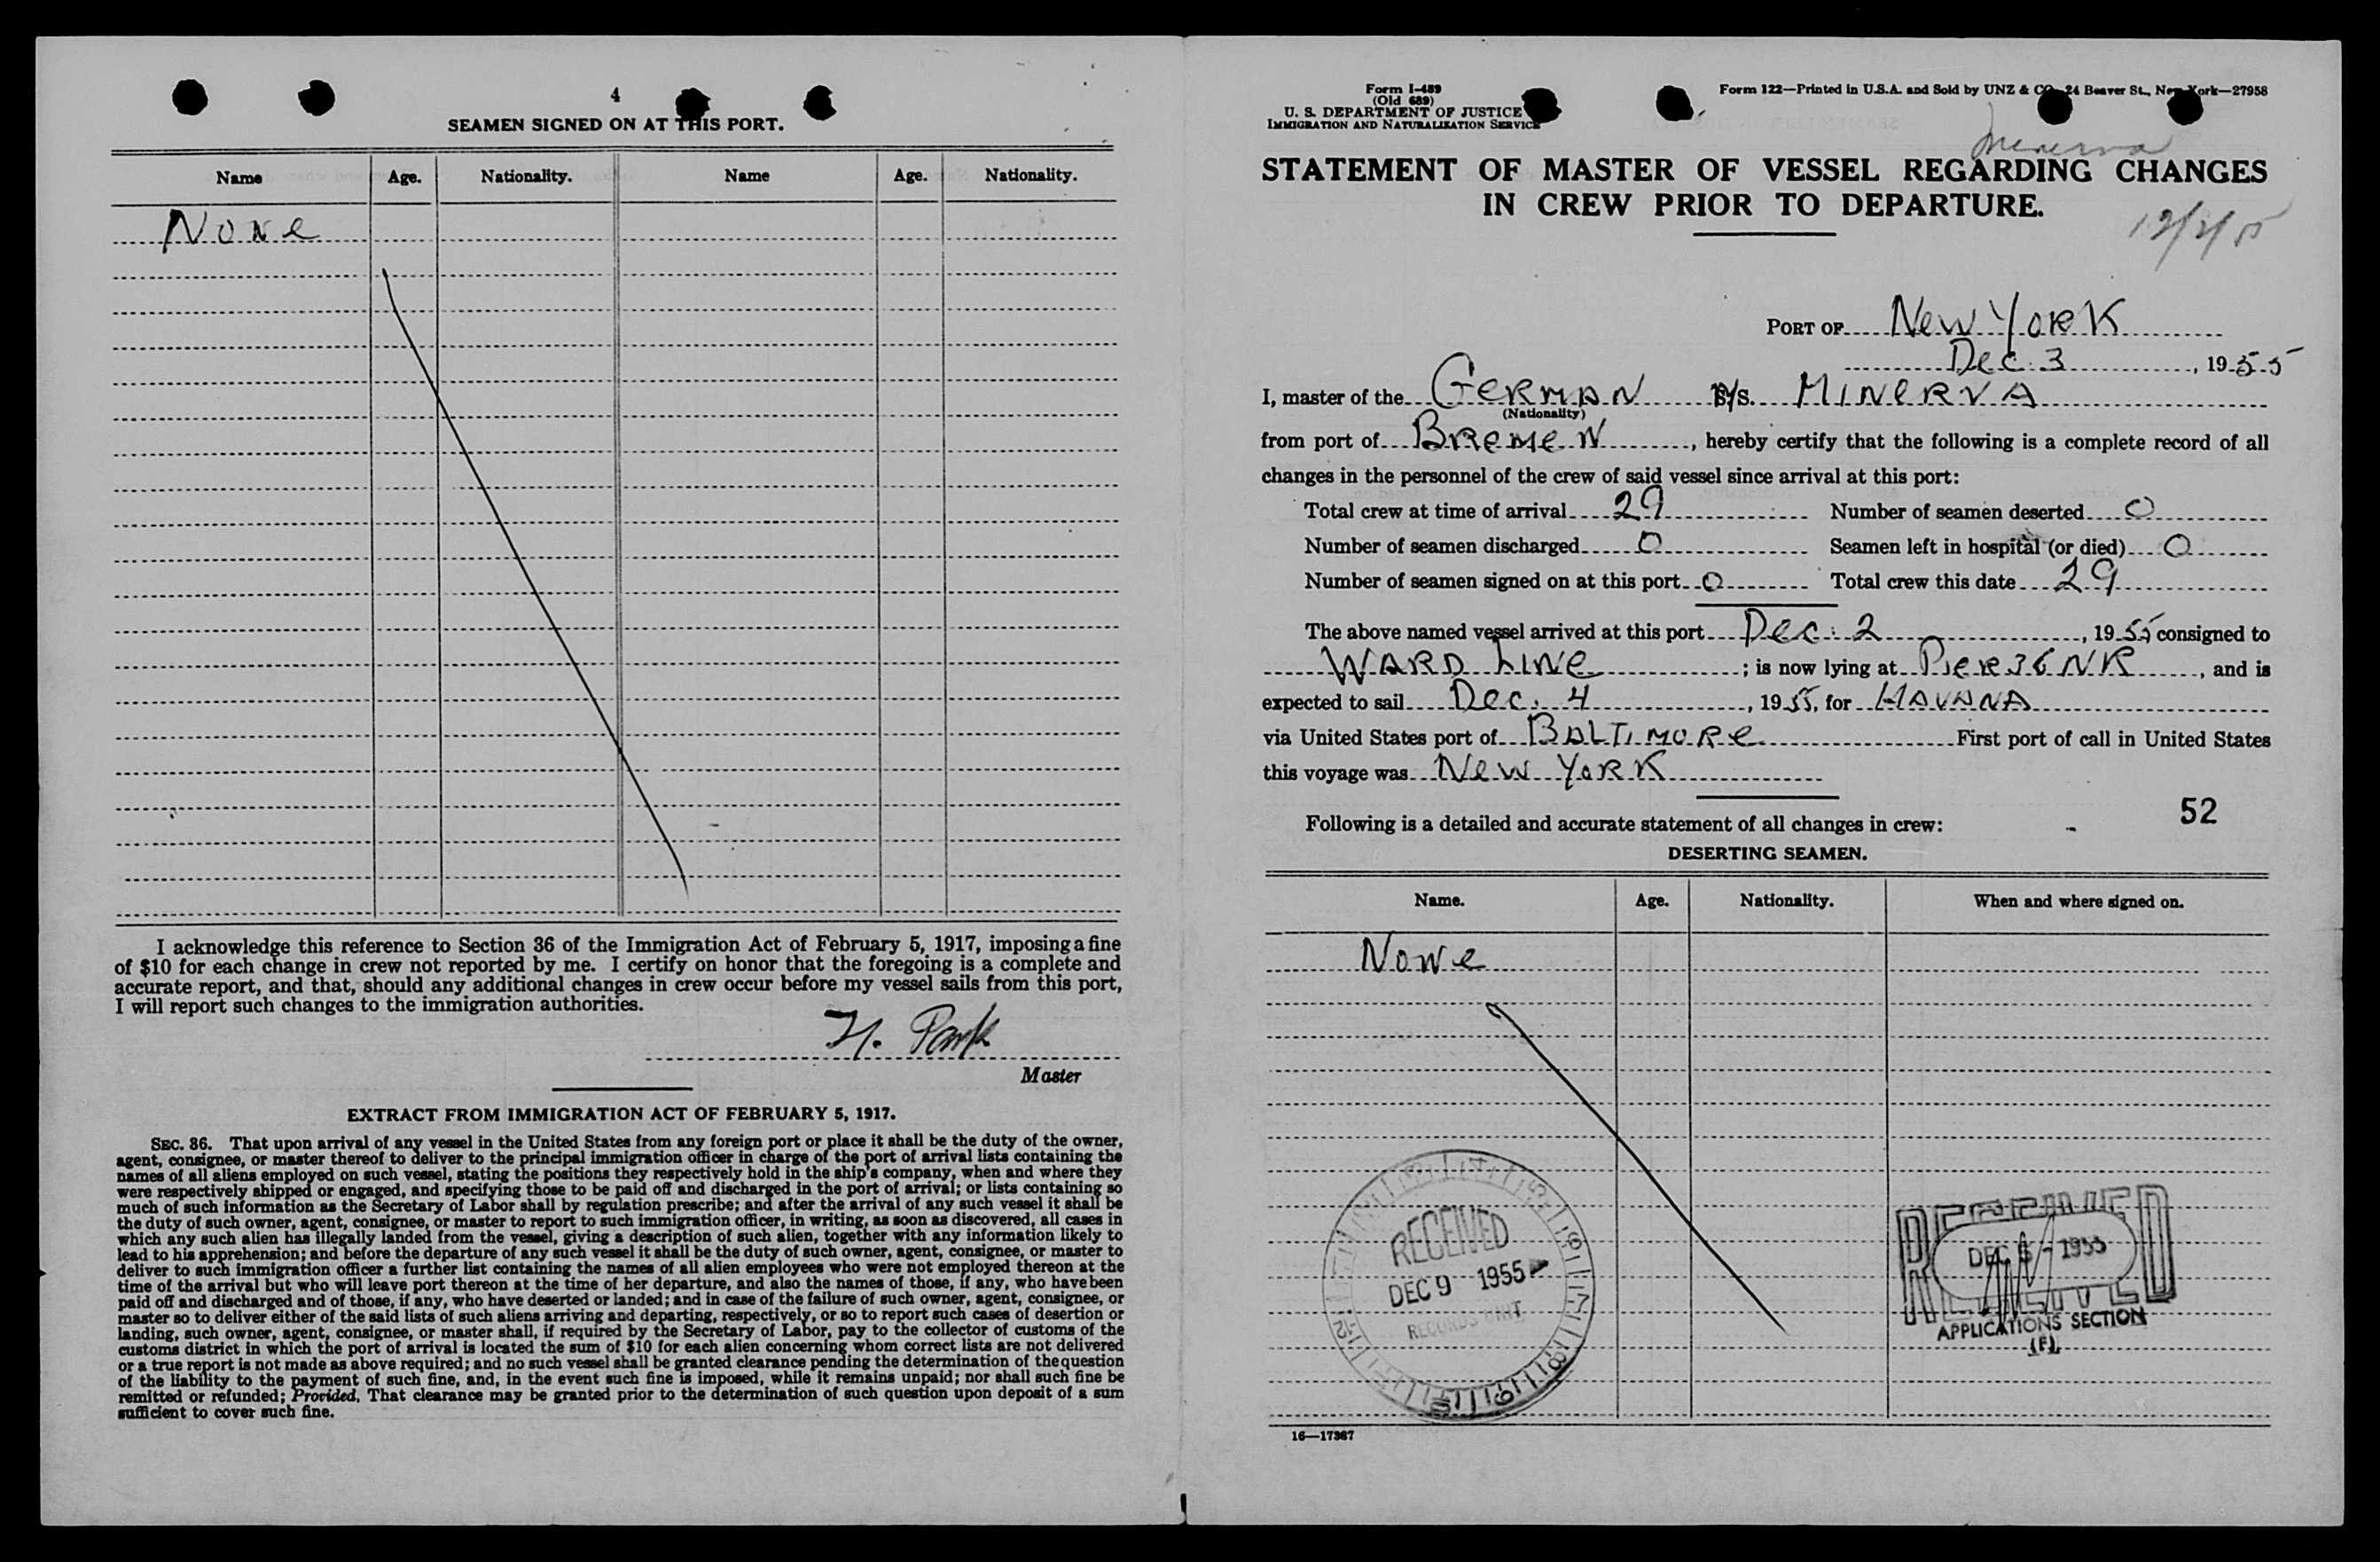 4
SEAMEN SIGNED ON AT THIS PORT.
Name Age. Nationality. Name Age. Nationality.
None
I acknowledge this reference to Section 36 of the Immigration Act of February 5, 1917, imposing a fine
of $10 for each change in crew not reported by me. I certify on honor that the foregoing is a complete and
accurate report, and that, should any additional changes in crew occur before my vessel sails from this port,
I will report such changes to the immigration authorities.
H.
Master
EXTRACT FROM IMMIGRATION ACT OF FEBRUARY 5, 1917.
SEC. 36. That upon arrival of any vessel in the United States from any foreign port or place it shall be the duty of the owner,
agent, consignee, or master thereof to deliver to the principal immigration officer in charge of the port of arrival lists containing the
names of all aliens employed on such vessel, stating the positions they respectively hold in the ship's company, when and where they
were respectively shipped or engaged, and specifying those to be paid off and discharged in the port of arrival; or lists containing so
much of such information as the Secretary of Labor shall by regulation prescribe; and after the arrival of any such vessel it shall be
the duty of such owner, agent, consignee, or master to report to such immigration officer, in writing, as soon as discovered, all cases in
which any such alien has illegally landed from the vessel, giving a description of such alien, together with any information likely to
lead to his apprehension; and before the departure of any such vessel it shall be the duty of such owner, agent, consignee, or master to
deliver to such immigration officer a further list containing the names of all alien employees who were not employed thereon at the
time of the arrival but who will leave port thereon at the time of her departure, and also the names of those, if any, who have been
paid off and discharged and of those, if any, who have deserted or landed; and in case of the failure of such owner, agent, consignee, or
master so to deliver either of the said lists of such aliens arriving and departing, respectively, or so to report such cases of desertion or
landing, such owner, agent, consignee, or master shall, if required by the Secretary of Labor, pay to the collector of customs of the
customs district in which the port of arrival is located the sum of $10 for each alien concerning whom correct lists are not delivered
or a true report is not made as above required; and no such vessel shall be granted clearance pending the determination of the question
of the liability to the payment of such fine, and, in the event such fine is imposed, while it remains unpaid; nor shall such fine be
remitted or refunded; Provided, That clearance may be granted prior to the determination of such question upon deposit of a sum
sufficient to cover such fine.
Form I-489
(Old 689)
U. S. DEPARTMENT OF JUSTICE
IMMIGRATION AND NATURALIZATION SERVICE
Form 122—Printed in U.S.A. and Sold by UNZ & CO. 24 Beaver St., New York—27958
Minerva
STATEMENT OF MASTER OF VESSEL REGARDING CHANGES
IN CREW PRIOR TO DEPARTURE.
12/2/55
PORT OF New York
Dec. 3, 1955
I, master of the German M/S. MINERVA
(Nationality)
from port of Bremen, hereby certify that the following is a complete record of all
changes in the personnel of the crew of said vessel since arrival at this port:
Total crew at time of arrival 29 Number of seamen deserted 0
Number of seamen discharged 0 Seamen left in hospital (or died) 0
Number of seamen signed on at this port 0 Total crew this date 29
The above named vessel arrived at this port Dec. 2, 1955 consigned to
WARD LINE; is now lying at Pier 36 NR, and is
expected to sail Dec. 4, 1955, for HAVANA
via United States port of BALTIMORE First port of call in United States
this voyage was New York
52
Following is a detailed and accurate statement of all changes in crew:
DESERTING SEAMEN.
Name. Age. Nationality. When and where signed on.
None
RECEIVED
DEC 9 1955
RECORDS UNIT
RECEIVED
DEC 5 - 1955
APPLICATIONS SECTION
(F)
16—17367